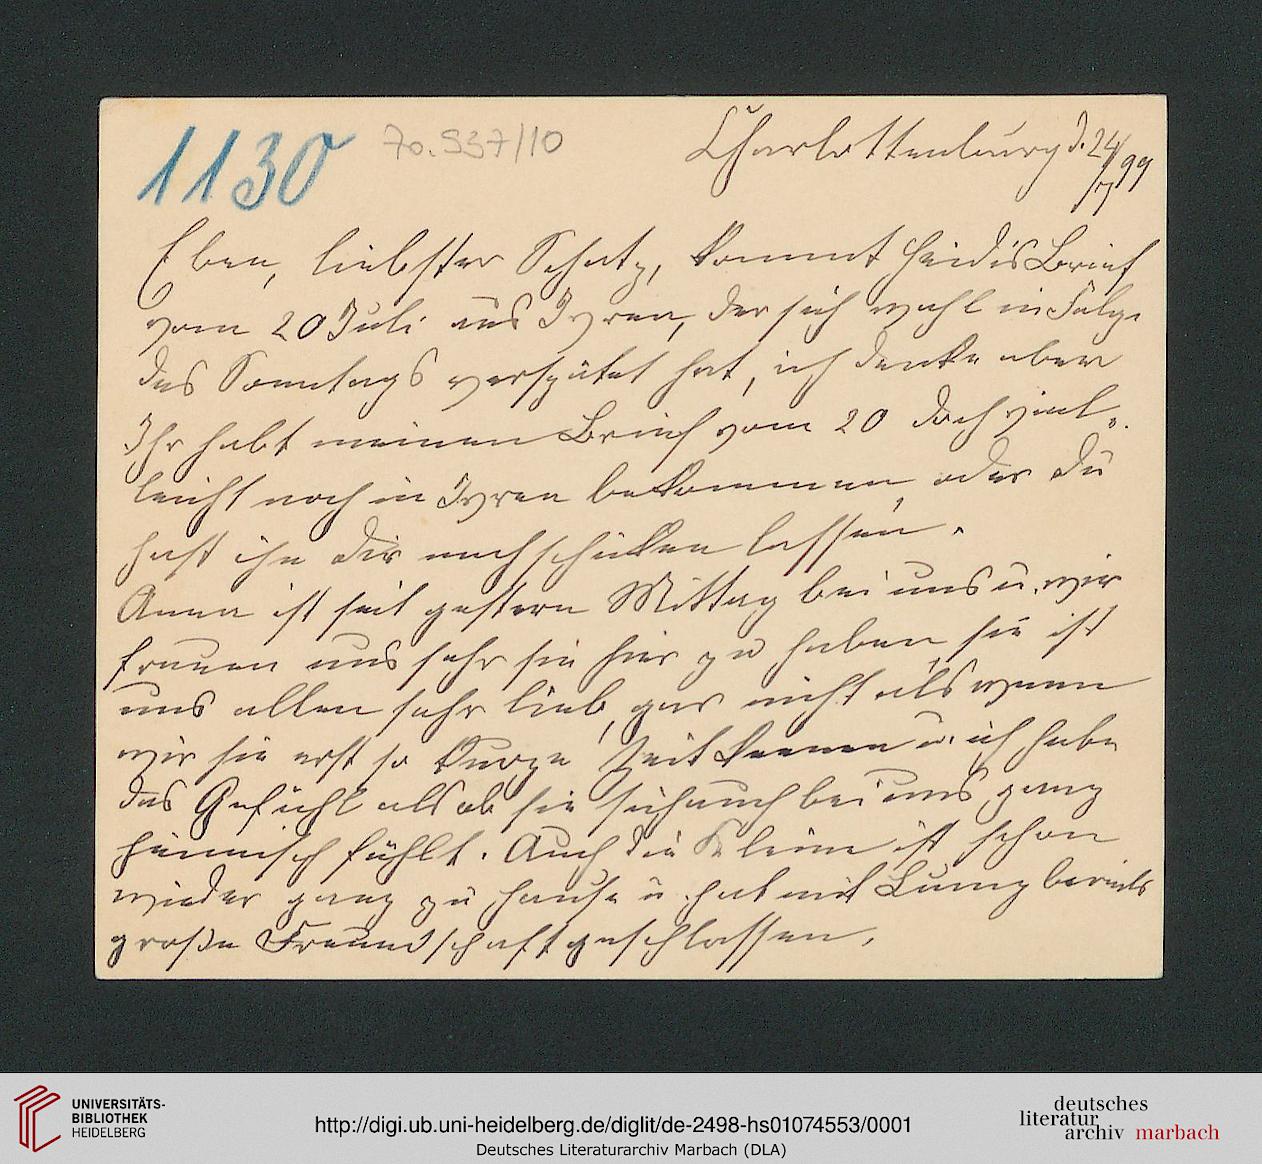 1130 70.537/10 Charlottenburg d. 24/7 99
Eben, liebster Schatz, kommt Heidis Brief
vom 20 Juli aus Igren, der sich wohl in Folge
des Sonntags verspätet hat, ich denke aber
Ihr habt meinen Brief vom 20 doch viel-
leicht noch in Igren bekommen, oder Du
hast ihn Dir nachschicken lassen.
Anna ist seit gestern Mittag bei uns u. wir
freuen uns sehr sie hier zu haben, sie ist
uns allen sehr lieb, gar nicht als wenn
wir sie erst so kurze Zeit kennen u. ich habe
das Gefühl als ob sie sich auch bei uns ganz
heimisch fühlt. Auch die Kleine ist schon
wieder ganz zu Hause u. hat mit bereits
große Freundschaft geschlossen.
UNIVERSITÄTS-
BIBLIOTHEK
HEIDELBERG
http://digi.ub.uni-heidelberg.de/diglit/de-2498-hs01074553/0001
Deutsches Literaturarchiv Marbach (DLA)
deutsches
literatur
archiv marbach